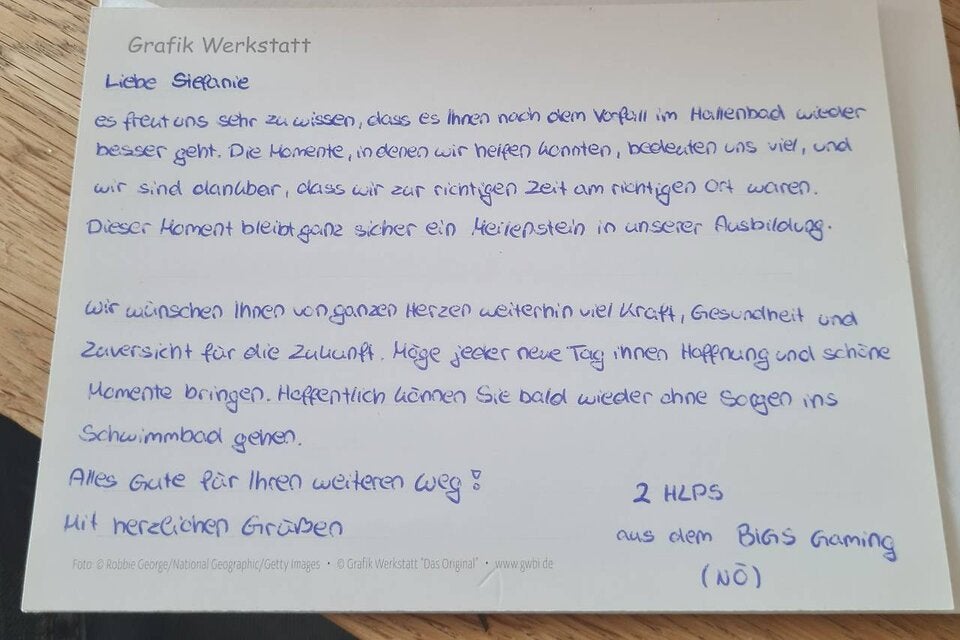 Grafik Werkstatt
Liebe Stefanie
es freut uns sehr zu wissen, dass es Ihnen nach dem Vorfall im Hallenbad wieder
besser geht. Die Momente, in denen wir helfen konnten, bedeuten uns viel, und
wir sind dankbar, dass wir zur richtigen Zeit am richtigen Ort waren.
Dieser Moment bleibt ganz sicher ein Meilenstein in unserer Ausbildung.
Wir wünschen Ihnen von ganzen Herzen weiterhin viel Kraft, Gesundheit und
Zuversicht für die Zukunft. Möge jeder neue Tag ihnen Hoffnung und schöne
Momente bringen. Hoffentlich können Sie bald wieder ohne Sorgen ins
Schwimmbad gehen.
Alles Gute für Ihren weiteren Weg!
Mit herzlichen Grüßen
2 HLPS
aus dem BiGS Gaming
(NÖ)
Foto: © Robbie George/National Geographic/Getty Images • © Grafik Werkstatt "Das Original" • www.gwbi.de